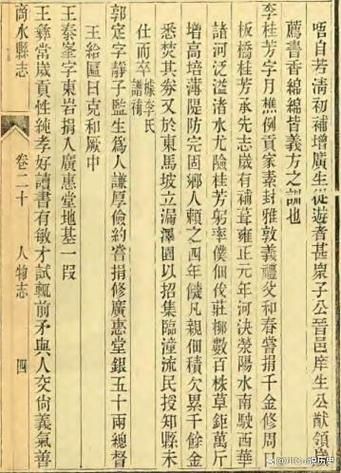 唔自若淸初補增廣生從遊者甚衆子公晉邑庠生公猷領
薦書香綿綿皆義方之訓也
李桂芳字月樵例貢家素封雅敦義禮父和春嘗捐千金修周口
板橋桂芳承先志歲有補葺雍正元年河決滎陽水南駛西華
諸河泛溢渚水尤險桂芳躬率僕佃伐莊柳數百株草鉅萬斤
增高培薄隄防完固鄉人賴之四年饑凡親佃積欠累千餘金
悉焚其券又於東馬坡立漏澤園以招集臨潼流民授知縣未
仕而卒據李氏譜補
郭定字靜子監生爲人謙厚儉約嘗捐修廣惠堂銀五十兩總督
王給匾曰克和厥中
王泰峯字東岩捐入廣惠堂地基一段
王彝常歲貢性純孝好讀書有敏才試輒前矛與人交尙義氣善
商水縣志 卷二十 人物志 四
说历史